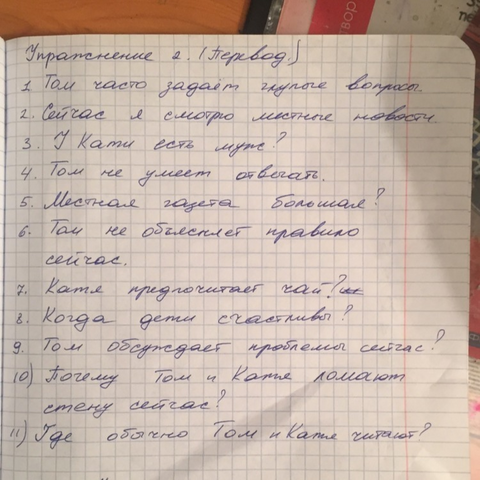 твор
Упражнение 2. (Перевод.)
1. Том часто задаёт глупые вопросы.
2. Сейчас я смотрю местные новости.
3. У Кати есть муж?
4. Том не умеет отвечать.
5. Местная газета большая?
6. Том не объясняет правило
сейчас.
7. Катя предпочитает чай?
8. Когда дети счастливы?
9. Том обсуждает проблемы сейчас?
10) Почему Том и Катя ломают
стену сейчас?
11) Где обычно Том и Катя читают?